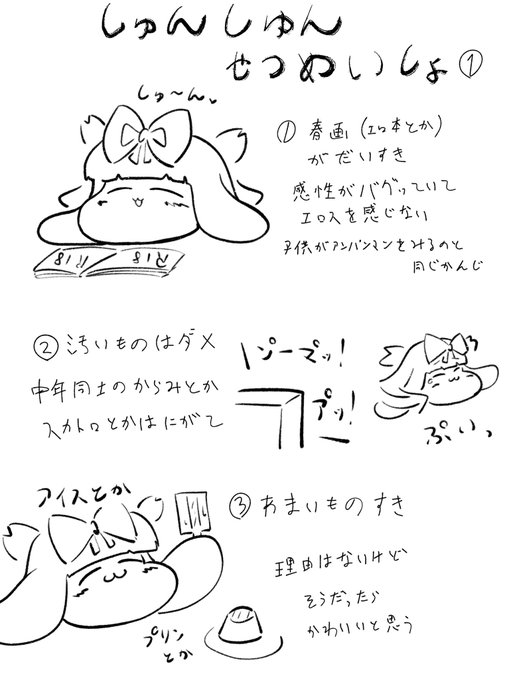 しゅんしゅん
せつめいしょ①
しゅ〜ん、
①春画(エロ本とか)
がだいすき
感性がバグッていて
エロスを感じない
子供がアンパンマンをみるのと
同じかんじ
R18
R18
②汚いものはダメ
中年同士のからみとか
スカトロとかはにがて
ソーズッ!
アッ!
ぷいっ
アイスとか
③あまいものすき
理由はないけど
そうだったら
かわいいと思う
プリン
とか